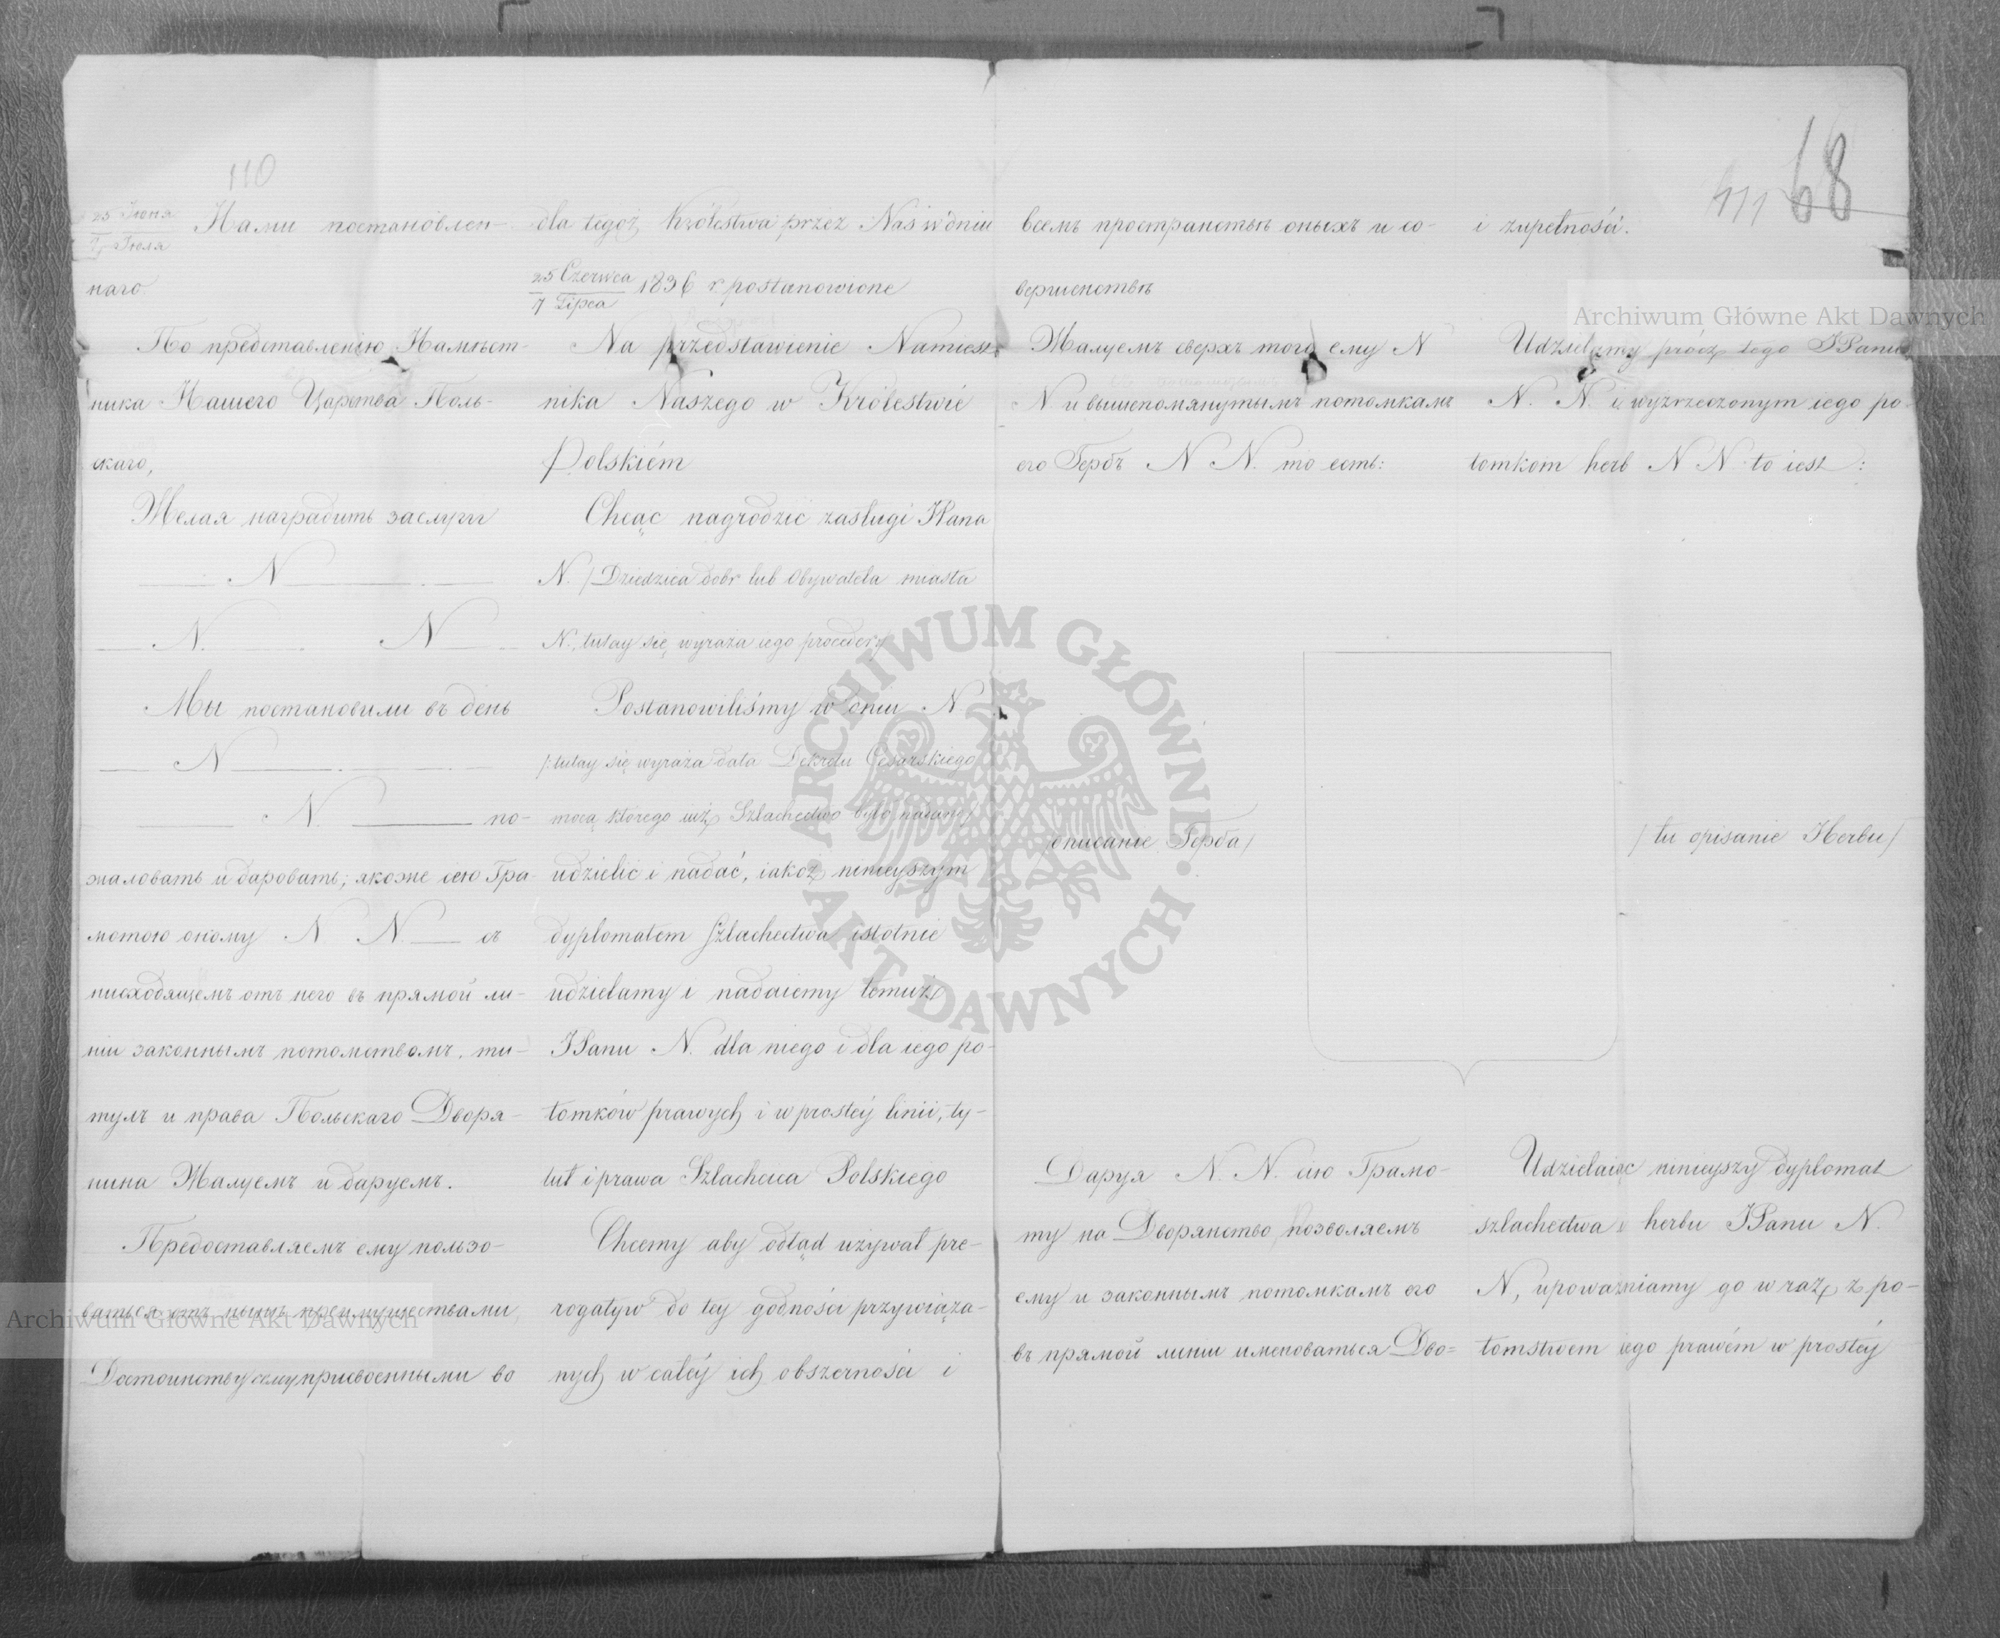 110
25 Іюня
7 Іюля
Нами постановлен-
наго.
По представленію Намѣст-
ника Нашего Царства Поль-
скаго,
Желая наградить заслуги
N
N. N
Мы постановили въ день
N
N. по-
жаловать и даровать; якоже сею Гра-
мотою оному N. N. съ
нисходящемъ отъ него въ прямой ли-
ніи законнымъ потомствомъ, ти-
тулъ и права Польскаго Дворя-
нина Жалуемъ и даруемъ.
Предоставляемъ ему пользо-
ваться отъ нынѣ преимуществами,
Достоинству сему присвоенными во
dla tegoż Królestwa przez Nas w dniu
25 Czerwca
7 Lipca
1836 r postanowione
Na przedstawienie Namiest-
nika Naszego w Królestwie
Polskiém
Chcąc nagrodzić zasługi JPana
N. /Dziedzica dobr lub Obywatela miasta
N., tutay się wyraża iego procedery
Postanowiliśmy w dniu N
/:tutay się wyraża data Dekretu Cesarskiego
mocą ktorego iuż Szlachectwo było nadane/
udzielić i nadać, iakoż ninieyszym
dyplomatem Szlachectwa istotnie
udzielamy i nadaiemy temuż
JPanu N. dla niego i dla iego po-
tomków prawych i w prostéy linii, ty-
tuł i prawa Szlachcica Polskiego
Chcemy aby odtąd używał pre-
rogatyw do tey godności przywiąza-
nych w całéy ich obszerności i
111 68
всемъ пространствѣ оныхъ и со-
вершенствѣ
Жалуемъ сверхъ того ему N
N. и вышепомянутымъ потомкамъ
его Гербъ N N. то есть:
описание Герба/
Даруя N. N. сію Грамо-
ту на Дворянство, позволяемъ
ему и законнымъ потомкамъ его
въ прямой линіи именоваться Дво=
i zupełności.
Udzielamy prócz tego JPanu
N. N. i wyżrzeczonym iego po-
tomkom herb N N to iest:
/tu opisanie Herbu/
Udzielaiąc ninieyszy dyplomat
szlachectwa i herbu JPanu N.
N, upoważniamy go w raz z po-
tomstwem iego prawém w prostéy
Archiwum Główne Akt Dawnych
Archiwum Główne Akt Dawnych
ARCHIWUM GŁÓWNE AKT DAWNYCH